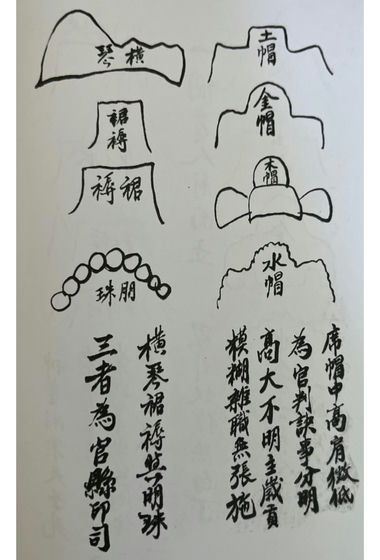 土帽
金帽
木帽
水帽
橫琴
裙褥
裙褥
朋珠
席帽中高肩微低
為官判訣事分明
高大不明主歲貢
模糊雜職無張施
橫琴裙褥與明珠
三者為官縣印司